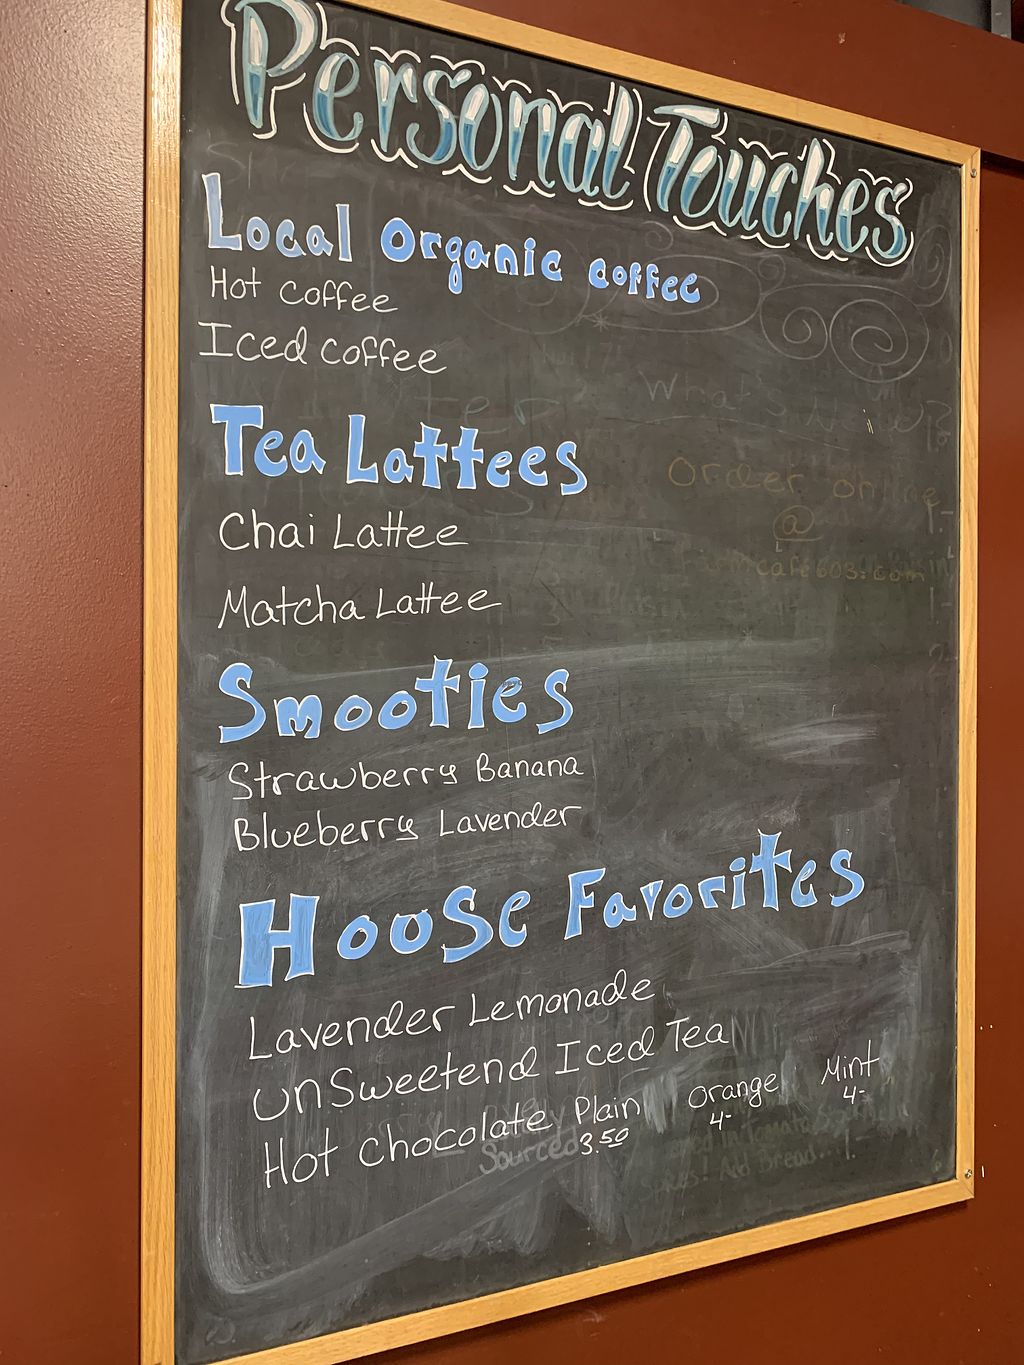 Personal Touches
Local Organic Coffee
Hot Coffee
Iced Coffee
What's New?
Tea Lattees
Order online
@
Chai Lattee
farmcafe603.com
Matcha Lattee
Smooties
Strawberry Banana
Blueberry Lavender
House Favorites
Lavender Lemonade
UnSweetend Iced Tea
Hot Chocolate Plain Orange Mint
3.50 4- 4-
Sourced
Add Bread...